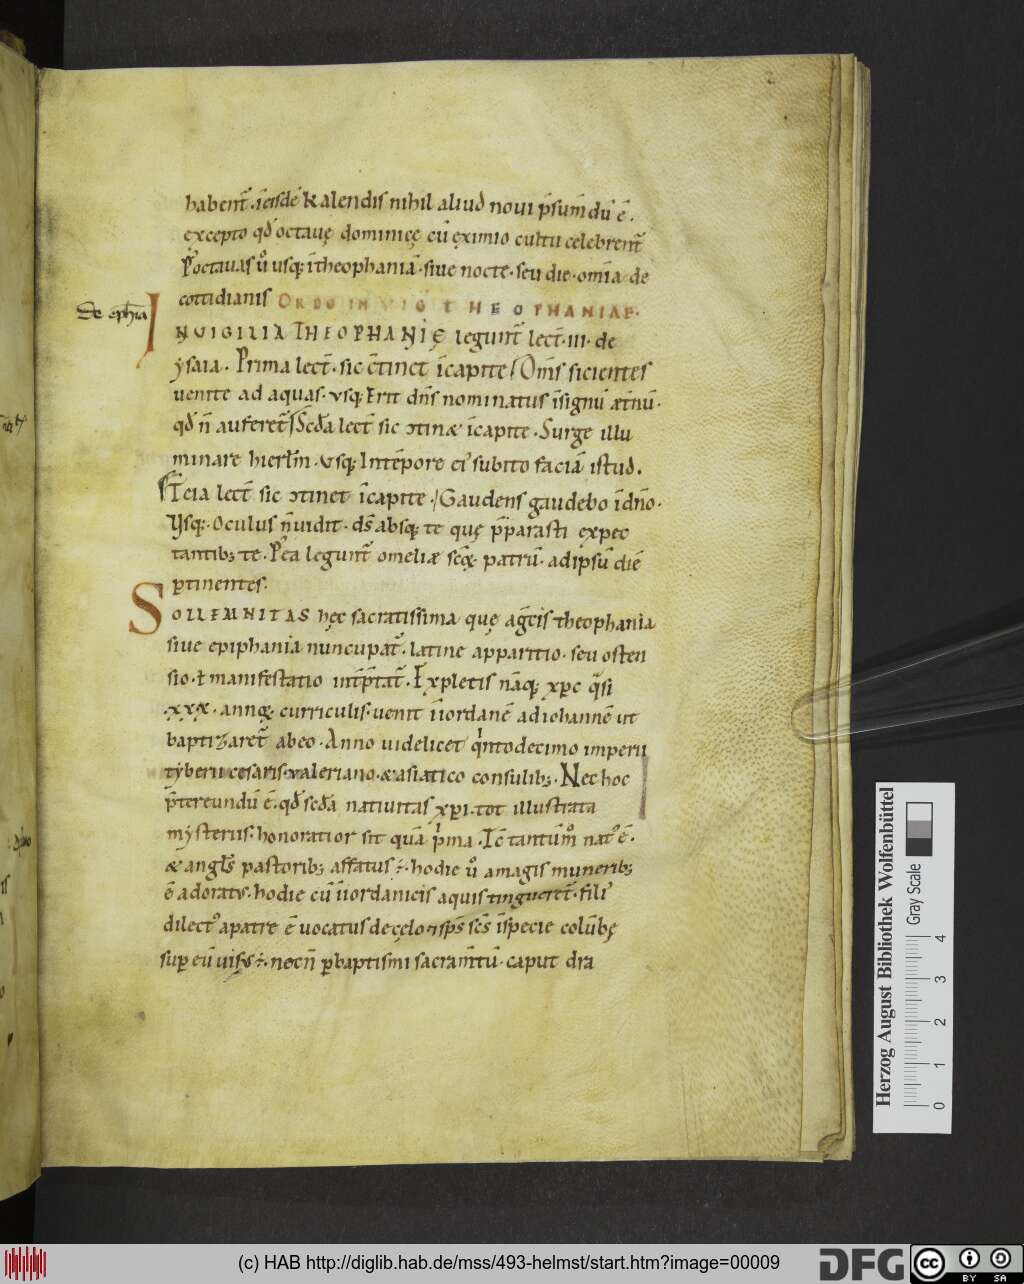 habent̄. ī eisdē kalendis nihil aliud noui p̄sum̄dū ē.
excepto qđ octauę dominicę cū eximio cultu celebrent̄
P̄ octauas ů usq; ī theophaniā. siue nocte. seu die. om̄ia de
cottidianis ORDO IN VIG̅ THEOPHANIAE.
De eph̄ia
IN VIGILIA THEOPHANIĘ legunt̄ lect̄. III. de
ysaia. Prima lect̄. sic c̄tinet ī capite / Om̄s sicientes
uenite ad aquas. vsq; Erit dn̄s nominatus ī signū ætn̄ū.
qđ n̄ auferet̄ / Scđa lect̄ sic ɔtinæ ī capite. Surge illu
minare hierl̄m. Vsq; In tēpore ei᷒ subito faciā istud.
T̄cia lect̄ sic ɔtinet ī capite. / Gaudens gaudebo ī dn̄o.
Vsq;. Oculus n̄ uidit. dś absq; te quę p̄parasti expec
tantib; te. P̄ea legunt̄ omeliæ scōꝝ patrū. ad ipsū diē
ꝑtinentes.
SOLLEMNITAS hęc sacratissima quę agc̄is theophania
siue epiphania nuncupat̄. latine apparitio. seu osten
sio. ł manifestatio int̄p̄tat̄. Expletis nāq; xp̄c q̄si
.xxx. annoꝝ. curriculis. uenit ī iordanē ad iohannē ut
baptizaret̄ ab eo. Anno uidelicet q̇ntodecimo imperii
tyberii cesaris. valeriano. & asiatico consulib;. Nec hoc
p̄tereundū ē. qđ scđa natiuitas xp̄i. tot illustrata
mysteriis. honoratior sit quā ṗma. Ic̄ tantūm̊ nat᷒ ē.
& angl̄s pastorib; affatus ÷. hodie ů a magis muneribꝫ
ē adoratus. hodie cū ī iordanicis aquis tingueret̄. fili᷒
dilect᷒ a patre ē uocatus de cęlo ⁊ sps̄ sc̄s ī specie colūbę
suꝑ eū uis᷒ ÷. necn̄ ꝑ baptismi sacram̄tū. caput dra
Herzog August Bibliothek Wolfenbüttel
Gray Scale
0 1 2 3 4
(c) HAB http://diglib.hab.de/mss/493-helmst/start.htm?image=00009
DFG
cc BY SA